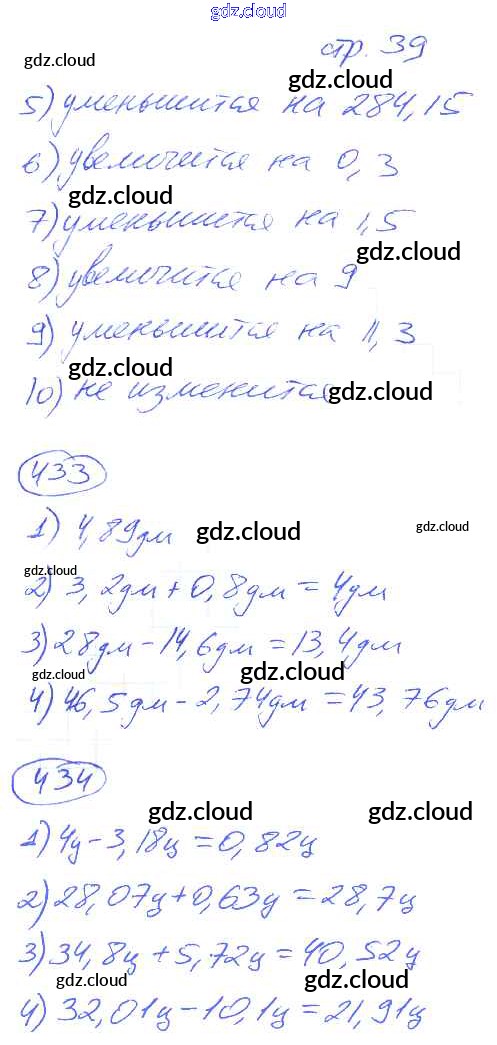 gdz.cloud
стр. 39
gdz.cloud
gdz.cloud
5) уменьшится на 284,15
6) увеличится на 0,3
gdz.cloud
7) уменьшится на 1,5
gdz.cloud
8) увеличится на 9
9) уменьшится на 11,3
gdz.cloud
10) не изменится
gdz.cloud
433
1) 4,89дм
gdz.cloud
gdz.cloud
gdz.cloud
2) 3,2дм + 0,8дм = 4дм
3) 28дм - 14,6дм = 13,4дм
gdz.cloud
gdz.cloud
4) 46,5дм - 2,74дм = 43,76дм
434
gdz.cloud
gdz.cloud
1) 4ц - 3,18ц = 0,82ц
2) 28,07ц + 0,63ц = 28,7ц
3) 34,8ц + 5,72ц = 40,52ц
gdz.cloud
gdz.cloud
4) 32,01ц - 10,1ц = 21,91ц